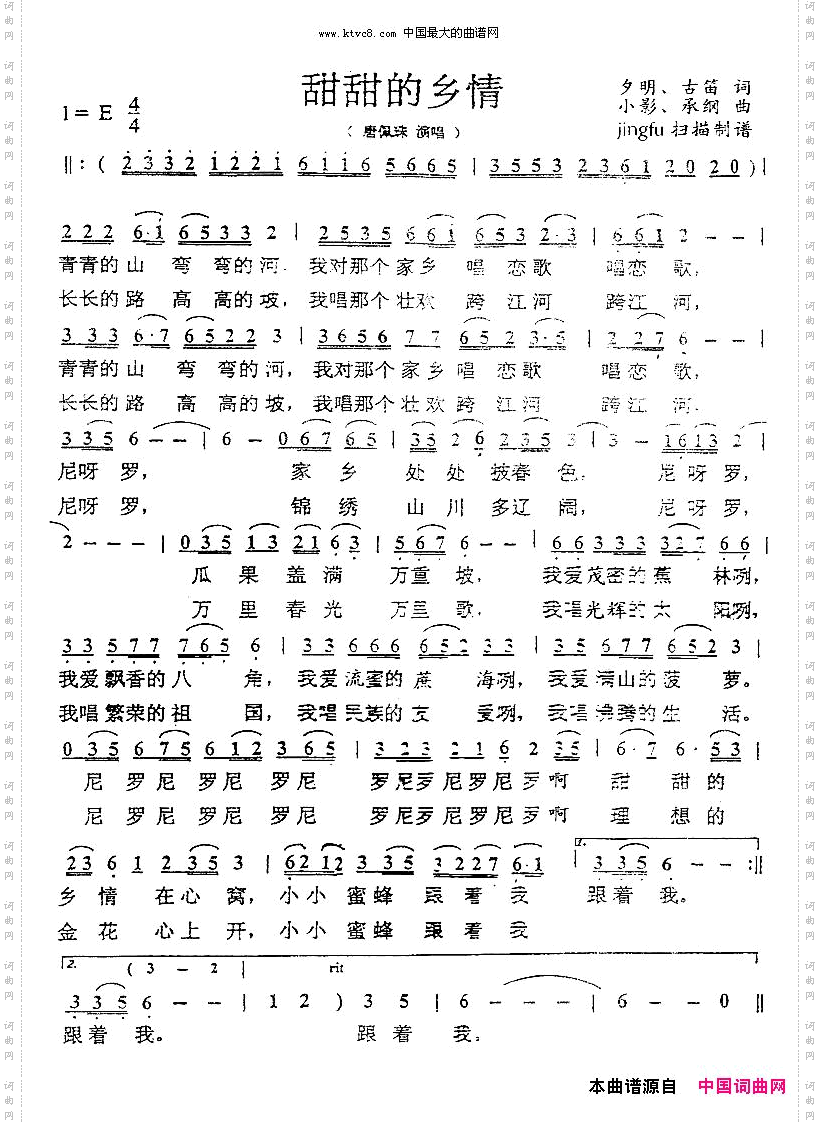 www.ktvc8.com 中国最大的曲谱网
甜甜的乡情
夕明、古笛 词
1= E 4/4
小影、承纲 曲
( 唐佩珠 演唱 )
jingfu 扫描制谱
‖: ( 2332 1221 6116 5665 | 3553 2361 2020 ) |
222 6·1 6533 2 | 2535 661 653 2·3 | 661 2 - - |
青青的 山 弯 弯的 河. 我对那个 家 乡 唱 恋歌 唱恋 歌,
长长的 路 高 高的 坡, 我唱那个 壮欢 跨 江河 跨江 河,
333 6·7 6522 3 | 3656 77 652 3·5 | 227 6 - - |
青青的 山 弯 弯的 河, 我对那个 家 乡 唱 恋歌 唱恋 歌,
长长的 路 高 高的 坡, 我唱那个 壮欢 跨 江河 跨江 河.
335 6 - - | 6 - 0676 5 | 35 2 6 235 3 | 3 - 1613 2 |
尼呀 罗, 家 乡 处 处 披春 色, 尼呀 罗,
尼呀 罗, 锦 绣 山 川 多辽 阔, 尼呀 罗,
2 - - - | 035 13 216 3 | 567 6 - - | 66333 3227 66 |
瓜 果 盖 满 万重 坡, 我爱茂密的 蕉 林咧,
万 里 春 光 万里 歌, 我唱光辉的 太 阳咧,
33577 765 6 | 33666 6535 55 | 35677 652 3 |
我爱 飘香的 八 角, 我爱 流蜜的 蔗 海咧, 我爱 满山的 菠 萝。
我唱 繁荣的 祖 国, 我唱 民族的 友 爱咧, 我唱 沸腾的 生 活。
035 675 612 365 | 323 2126 2 35 | 6·7 6·53 |
尼 罗尼 罗尼 罗尼 罗尼罗尼罗尼罗啊 甜 甜的
尼 罗尼 罗尼 罗尼 罗尼罗尼罗尼罗啊 理 想的
1.
23 6 1 235 3 | 6212 335 3227 6·1 | 335 6 - - :‖
乡 情 在心 窝, 小小 蜜蜂 跟 着 我 跟着 我。
金 花 心上 开, 小小 蜜蜂 跟 着 我
2. ( 3 - 2 | rit
335 6 - - | 1 2 ) 3 5 | 6 - - - | 6 - - 0 ‖
跟着 我。 跟着 我.
本曲谱源自 中国词曲网
词曲网